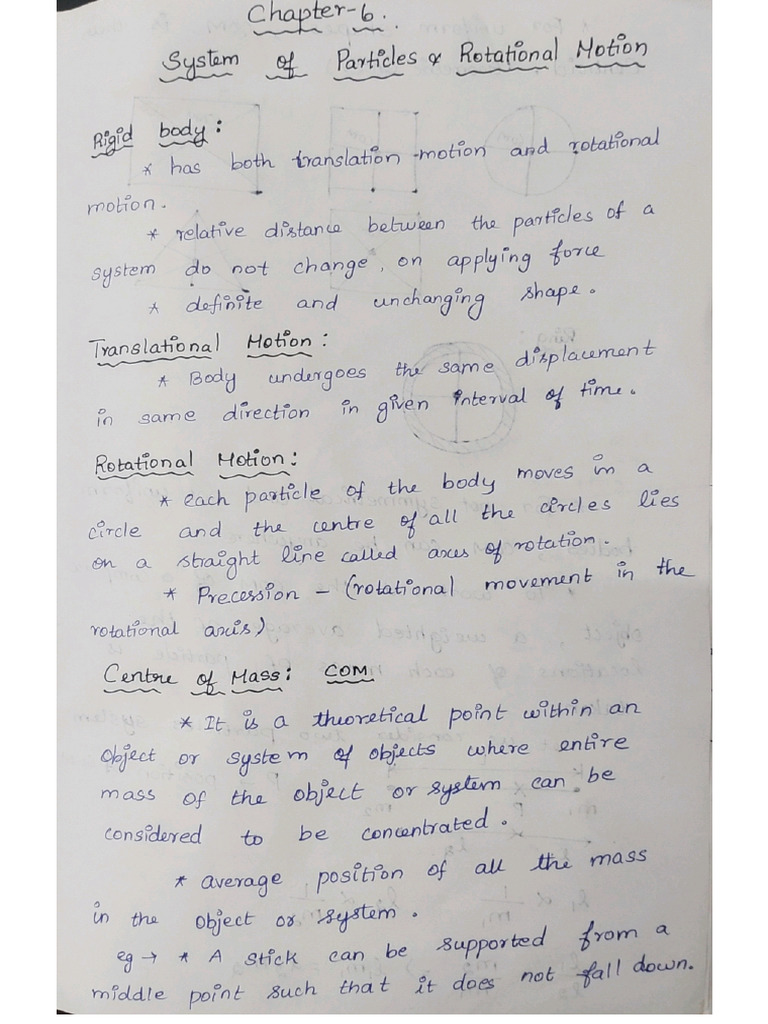 Chapter-6.
System of Particles & Rotational Motion
Rigid body:
* has both translation motion and rotational
motion.
* relative distance between the particles of a
system do not change, on applying force
* definite and unchanging shape.
Translational Motion:
* Body undergoes the same displacement
in same direction in given interval of time.
Rotational Motion:
* each particle of the body moves in a
circle and the centre of all the circles lies
on a straight line called axes of rotation.
* Precession - (rotational movement in the
rotational axis)
Centre of Mass: COM
* It is a theoretical point within an
object or system of objects where entire
mass of the object or system can be
considered to be concentrated.
* average position of all the mass
in the object or system.
eg → * A stick can be supported from a
middle point such that it does not fall down.